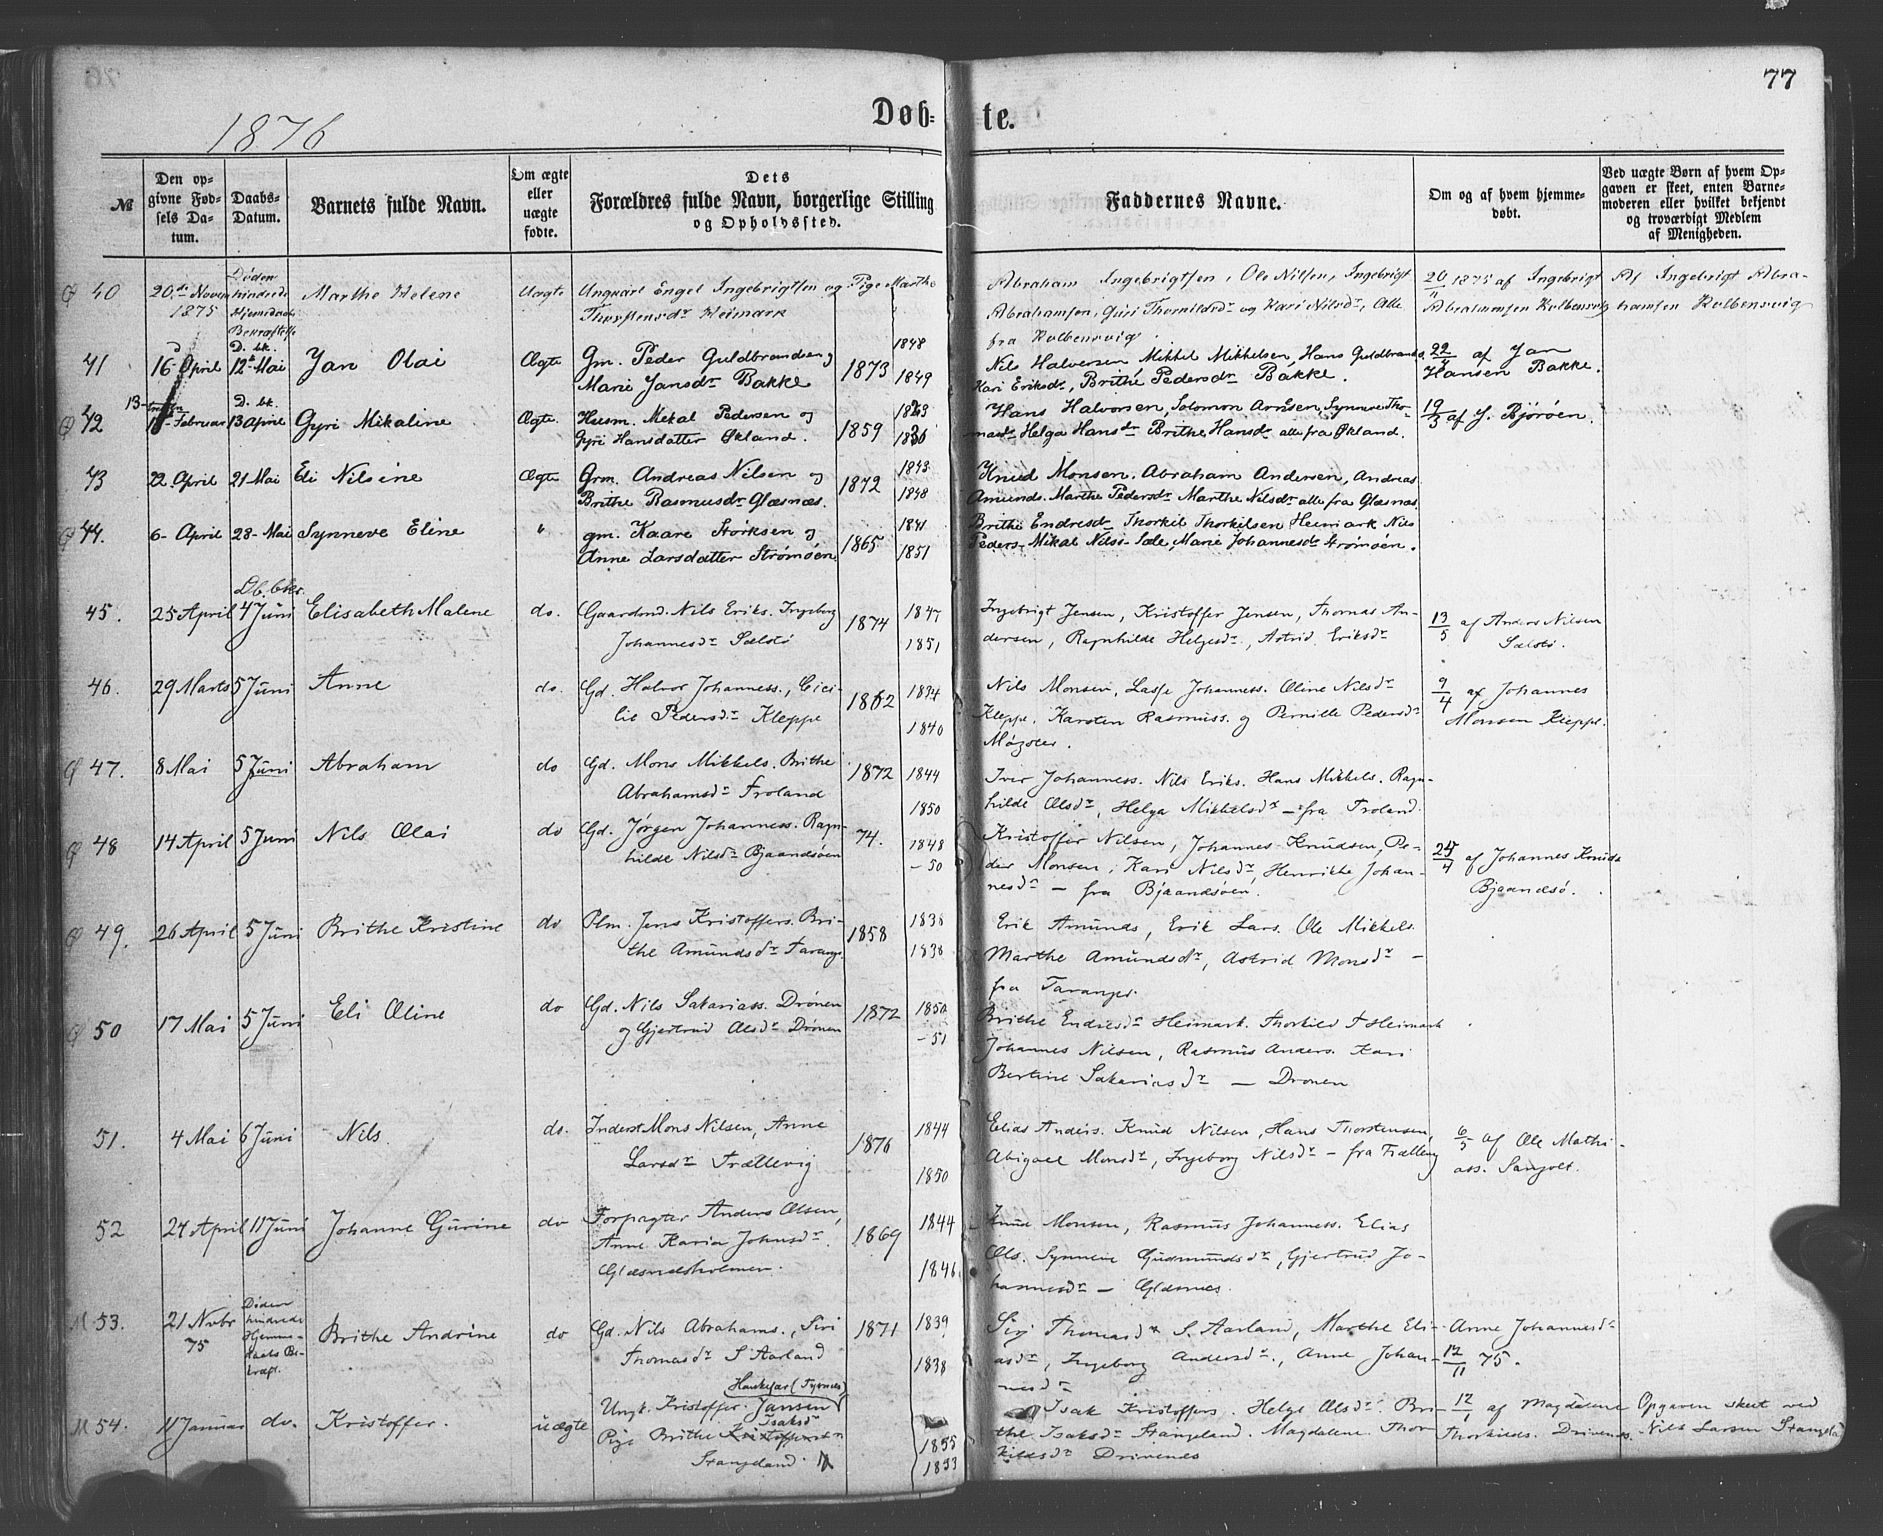 77
1876
Døb-te.
№
Den op-
givne Fød-
sels Da-
tum.
Daabs-
Datum.
Barnets fulde Navn.
Om ægte
eller
uægte
fødte.
Dets
Forældres fulde Navn, borgerlige Stilling
og Opholdssted.
Faddernes Navne.
Om og af hvem hjemme-
døbt.
Ved uægte Børn af hvem Op-
gaven er skeet, enten Barne-
moderen eller hvilket bekjendt
og troværdigt Medlem
af Menigheden.
40
20de Novem
1875
Døden
hindrede
Hjemmedaab
Bekræftelse
Marthe Helene
Uægte
Ungkarl Engel Ingebrigtsen og Pige Marthe
Thorstensdr Heimark
Abraham Ingebrigtsen, Ole Nilsen, Ingebrigt
Abrahamsen, Guri Thorkildsdr og Kari Nilsdr, Alle
fra Kolbensvig
20/11 1875 af Ingebrigt
Abrahamsen Kolbensvig
Af Ingebrigt Abra-
hamsen Kolbensvig
41
16 April
D. bk.
12te Mai
Jan Olai
Ægte
Gm. Peder Guldbrandsen og
Marie Jansdr Bakke
1873
1848
1849
Nils Halversen, Mikkel Mikkelsen, Hans Guldbrands.
Kari Eriksdr, Brithe Pedersdr Bakke.
22/4 af Jan
Hansen Bakke.
42
13-
Februar
D. bk.
13 April
Gyri Mikaline
Ægte
Husm. Mikal Pedersen og
Gyri Hansdatter Økland.
1859
Hans Halvorsen, Solomon Arnesen, Synneve Tho-
masdr Helga Hansdr Brithe Hansdr alle fra Økland.
19/3 af J. Bjørøen.
43
22 April
21 Mai
Eli Nilsine
Ægte
Grm. Andreas Nilsen og
Brithe Rasmusdr Glæsnæs.
1872
1843
1848
Knud Monsen, Abraham Andersen, Andreas
Amunds. Marthe Pedersdr Marthe Nilsdr alle fra Glæsnæs.
44.
6- April
28- Mai
Synneve Eline
"
gm. Kaare Størksen og
Anne Larsdatter Strømøen
1865
1841
1851
Brithe Endresdr Thorkil Thorkilsen Heimark Nils
Peders- Mikal Nils- Sæle, Marie Johannesdr Strømøen.
45.
25 April
Db. bks.
4 Juni
Elisabeth Malene
do.
Gaardmd. Nils Eriks. Ingeborg
Johannesdr Sælstø
1874
1847
1851
Ingebrigt Jensen, Kristoffer Jensen, Thomas An-
dersen, Ragnhilde Helgesdr, Astrid Eriksdr
13/5 af Anders Nilsen
Sælstø.
46.
29 Marts
5 Juni
Anne
do.
Gd. Halvor Johanness., Cici-
lie Pedersdr Kleppe
1862
1834
1840
Nils Monsen, Lasse Johanness. Oline Nilsdr
Kleppe, Karsten Rasmuss. og Pernille Pedersdr
Møgster.
9/4 af Johannes
Monsen Kleppe.
47.
8 Mai
5 Juni
Abraham
do
Gd. Mons Mikkels. Brithe
Abrahamsdr Froland
1872
1844
1850
Iver Johanness. Nils Eriks. Hans Mikkels. Ragn-
hilde Olsdr, Helga Mikkelsdr - fra Froland.
48
14 April
5 Juni
Nils Olai
do
Gd. Jørgen Johanness. Ragn-
hilde Nilsdr Bjaandsøen
74.
1848
- 50
Kristoffer Nilsen, Johannes Knudsen, Pe-
der Monsen, Kari Nilsdr, Henrikke Johan-
nesdr - fra Bjaandsøen.
24/4 af Johannes Knuds
Bjaandsø.
49.
26 April
5 Juni
Brithe Kristine
do
Plm. Jens Kristoffers. Bri-
the Amundsdr Tarange
1858
1838
1838
Erik Amunds, Erik Lars. Ole Mikkels.
Marthe Amundsdr, Astrid Monsdr -
fra Taranger.
50
17 Mai
5 Juni
Eli Oline
do
Gd. Nils Sakariass. Drönen
og Gjertrud Olsdr Drönen
1872
1850
- 51
Brithe Endresdr Heimark. Thorkild T Heimark
Johannes Nilsen, Rasmus Anders. Kari
Bertine Sakariasdr - Dronen
51.
4 Mai
6 Juni
Nils.
do.
Inderst Mons Nilsen, Anne
Larsdr Trællevig
1876
1844
1850
Elias Anders. Knud Nilsen, Hans Thorstensen,
Abigael Monsdr, Ingeborg Nilsdr - fra Trællevig
6/5 af Ole Mathi-
ass. Sangolt.
52
24 April
11 Juni
Johanne Gurine
do
Forpagter Anders Olsen,
Anne Karia Johnsdr.
Glæsnesholmen.
1869
1844
1846
Knud Monsen, Rasmus Johanness. Elias
Ols. Synneve Gudmundsdr, Gjertrud Jo-
hannesdr - Glæsnes.
M 53.
21 Novbr
75
Døden
hindrede
Hjemme-
daabs Be-
kræft.
Brithe Andrine
do
Gd. Nils Abrahams., Siri
Thomasdr S Aarland
1871
1839
1838
Siri Thomasdr S. Aarland, Marthe Eli-
asdr, Ingeborg Andersdr., Anne Johan-
nesdr
Anne Johannesdr
12/11 75.
M 54.
11 Januar
do.
Kristoffer.
uægte
Haukefær (Tysnes)
Ungk. Kristoffer Jansen
Isaksdr
Pige Brithe Kristoffersdr
Stangeland.
1855
1853
Isak Kristoffers. Helge Olsdr. Bri-
the Isaksdr Stangeland. Magdalene Thor-
kildsdr Drivenes
12/1 af Magdalene
Thorkilds. Drivenes.
Opgaven skeet ved
Nils Larsen Stangeland